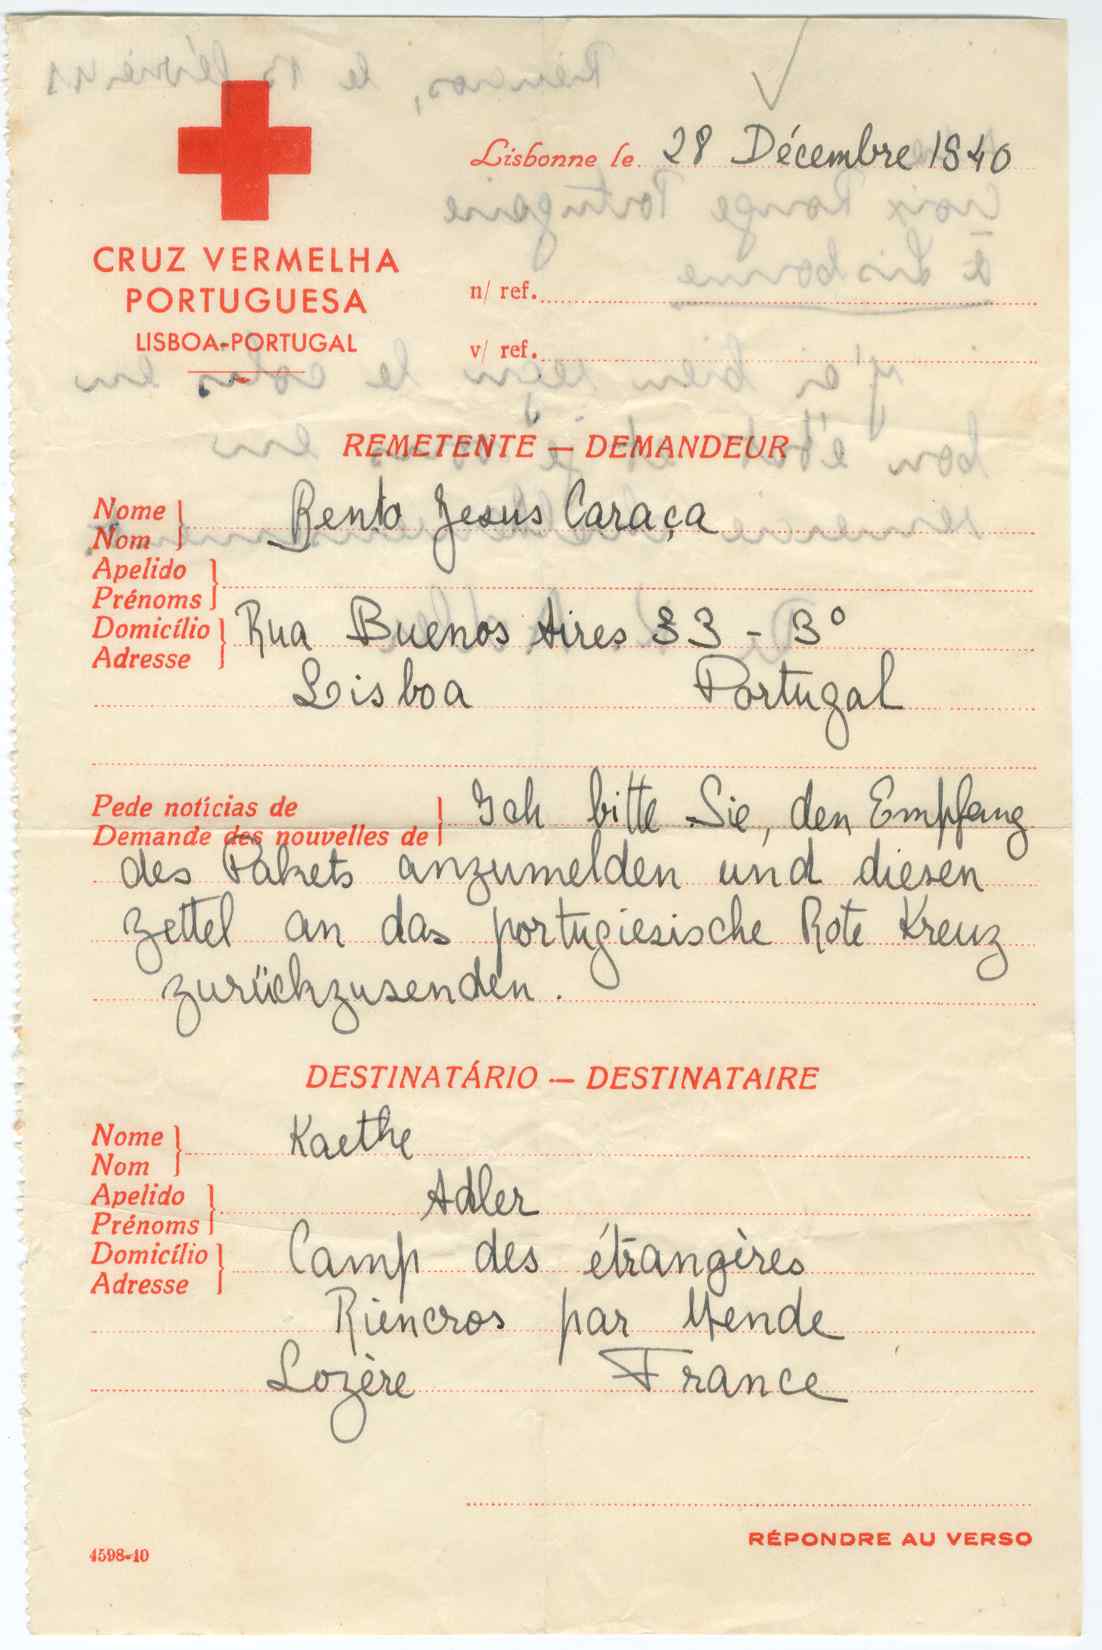 Lisbonne le 28 Décembre 1940
CRUZ VERMELHA
PORTUGUESA
LISBOA-PORTUGAL
n/ ref.
v/ ref.
REMETENTE — DEMANDEUR
Nome
Nom
Bento Jesus Caraça
Apelido
Prénoms
Domicílio
Adresse
Rua Buenos Aires 33 - 3º
Lisboa Portugal
Pede notícias de
Demande des nouvelles de
Ich bitte Sie, den Empfang
des Pakets anzumelden und diesen
Zettel an das portugiesische Rote Kreuz
zurückzusenden.
DESTINATÁRIO — DESTINATAIRE
Nome
Nom
Kaethe
Apelido
Prénoms
Adler
Domicílio
Adresse
Camp des étrangères
Riencros par Mende
Lozère France
RÉPONDRE AU VERSO
4598-10
Riencros, le 13 février 41
Croix Rouge Portugaise
à Lisbonne
J'ai bien reçu le colis en
bon état et je vous en
remercie